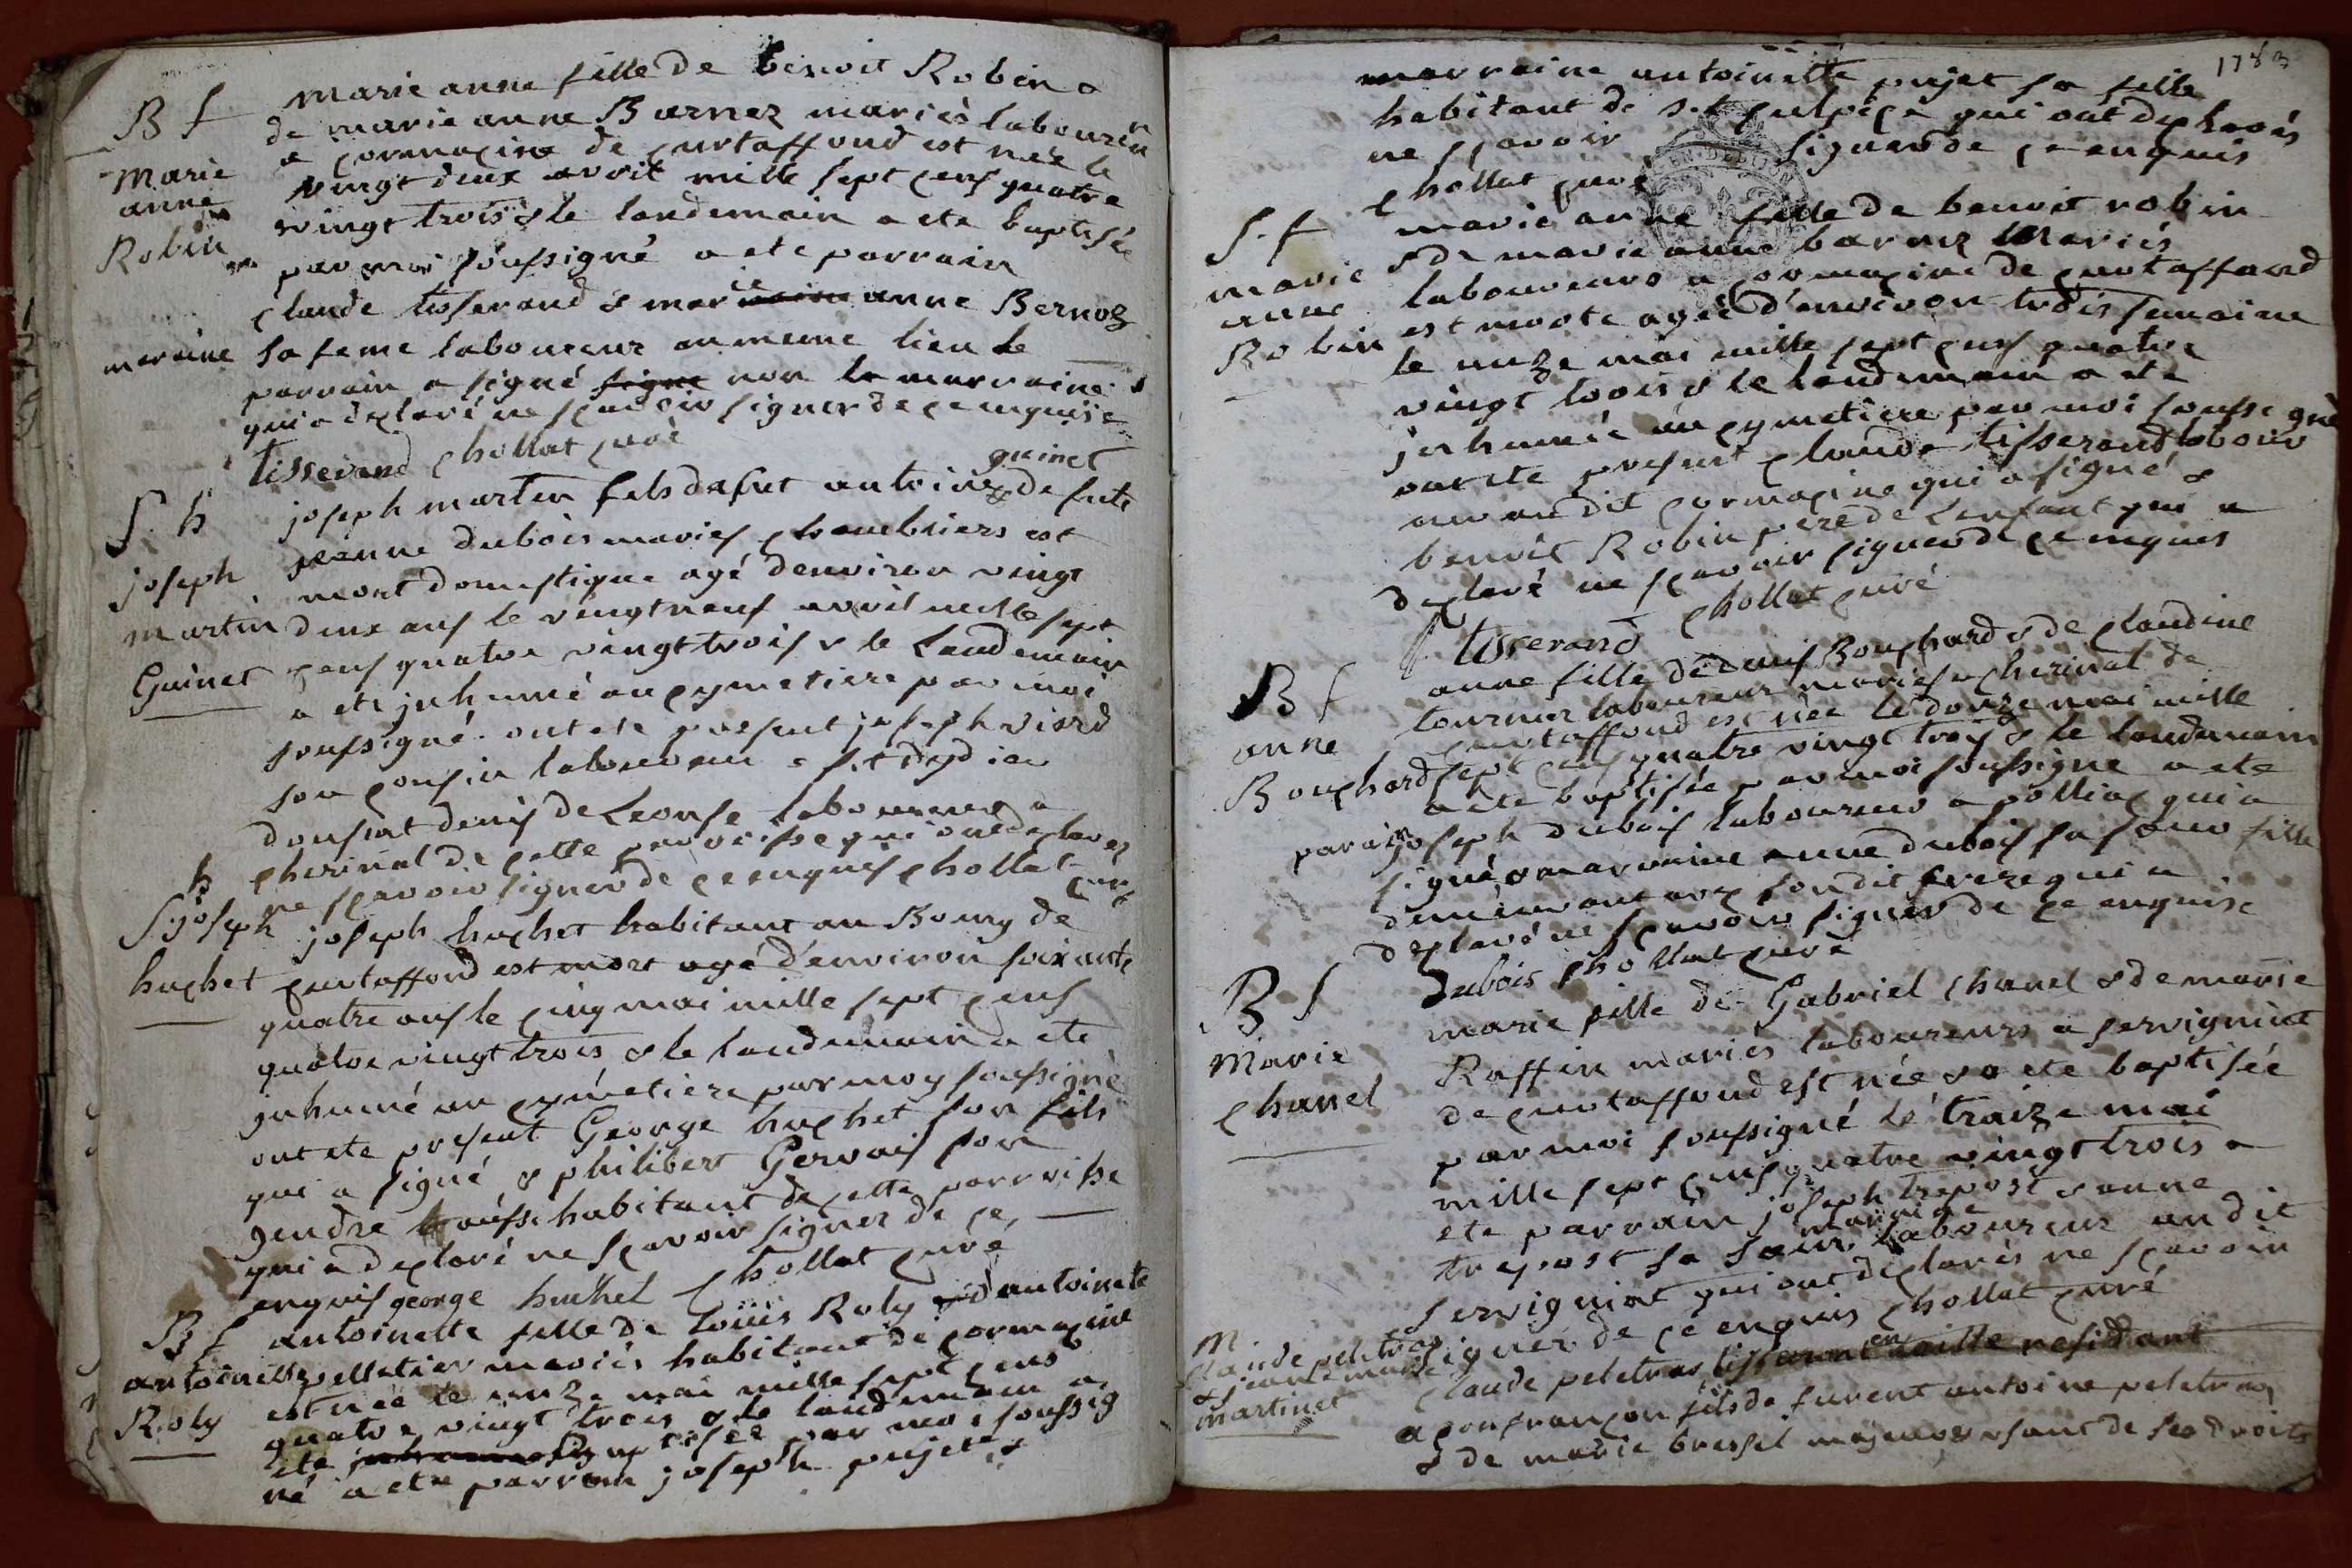 B f
marie anne fille de benoit Robin &
de marie anne Barnez mariés laboureur
Marie
a cormacine de curtaffond est née le
anne
vingt deux avril mille sept cens quatre
Robin
vingt trois & le landemain a ete baptisée
par moi soussigné a ete parrain
claude tisserand & marie anne Bernoz
meraine sa feme laboureur au meme lieu le
parrain a signé signe non la marraine
qui a declaré ne scavoir signer de ce enquise
Tisserand chollat curé
S. h
joseph martin fils de fut antoine guinet & de fute
jeanne dubois maries chambriers est
joseph
mort domestique agé denviron vingt
martin
deux ans le vingt neuf avril mille sept
Guinet
cens quatre vingt trois & le landemain
a ete inhumé au cymetiere par moi
soussigné. ont ete present joseph viard
son cousin laboureur a st didier
doussiat denis de Leonse laboureur a
cherinal de cette parroisse qui ont declarez
ne scavoir signer de ce enquis chollat curé
S. h joseph
joseph huchet habitant au Bourg de
huchet
curtaffond est mort agé d'environ soixante
quatre ans le cinq mai mille sept cens
quatre vingt trois & le landemain a ete
inhumé au cymetiere par moy soussigné
ont ete present George huchet son fils
qui a signé & philibert Gervais son
gendre aussi habitant de cette parroisse
qui a declaré ne scavoir signer de ce
enquis george huchet chollat curé
B f
antoinette fille de louis Roly & d'antoinete
antoinette
pelletier mariés habitant de cormacine
Roly
est née le unze mai mille sept cens
quatre vingt trois & le landemain a
ete baptisée par moi soussig
né a ete parrain joseph pujet &
1783
marraine antoinette pujet sa fille
habitant de st sulpice qui ont declarés
ne scavoir signer de ce enquis
chollat curé
S. f
marie anne fille de benoit robin
marie
& de marie anne barnez Mariés
anne
laboureurs a cormacine de curtaffond
Robin
est morte agée d'environ trois semaine
le unze mai mille sept cens quatre
vingt trois & le landemain a ete
inhumée au cymetiere par moi soussigné
ont ete present claude tisserand labour
eur au dit cormacine qui a signé &
benoit Robin pere de lenfant qui a
declaré ne scavoir signer de ce enquis
Tisserand chollat curé
B f
anne fille de denis Bouchard & de claudine
anne
tournier laboureur maries a cherinal de
Bouchard
curtaffond est née le douze mai mille
sept cens quatre vingt trois & le landemain
a ete baptisée par moi soussigné a ete
parain joseph dubois laboureur a polliac qui a
signé & marraine anne dubois sa soeur fille
demeurant avec son dit frere qui a
declaré ne scavoir signer de ce enquise
Dubois chollat curé
B f
marie fille de Gabriel chanel & de marie
Marie
Raffin mariés laboureurs a servigniat
chanel
de curtaffond est née & a ete baptisée
par moi soussigné le traize mai
mille sept cens quatre vingt trois a
ete parrain joseph trepost & anne
trepost sa soeur marraine laboureur au dit
servigniat qui ont declarés ne scavoir
signer de ce enquis chollat curé
M.
claude peletras
& jeanne marie
martinet
claude peletras
a confrançon fils de furent antoine peletras
& de marie bressel majeur usant de ses droits